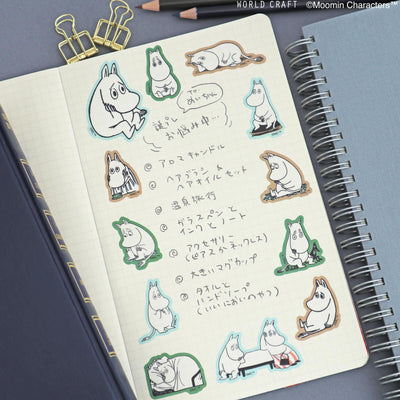 WORLD CRAFT
©Moomin Characters™
で めいちゃん
誕プレ
お悩み中…
アロマキャンドル
ヘアブラシ &
ヘアオイル セット
温泉旅行
ガラスペンと
インクとノート
アクセサリー
(ピアスかネックレス)
大きいマグカップ
タオルと
ハンドソープ
(いいにおいのやつ)